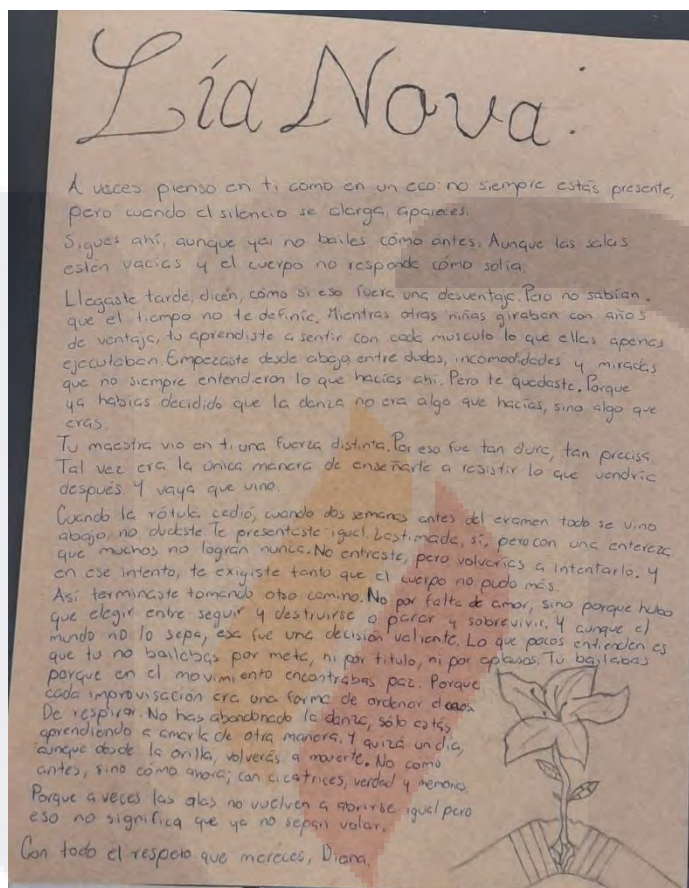 Lía Nova:
A veces pienso en ti como en un eco: no siempre estás presente,
pero cuando el silencio se alarga, apareces.
Sigues ahí, aunque ya no bailes cómo antes. Aunque las salas
estén vacías y el cuerpo no responde cómo solía.
Llegaste tarde, dicen, cómo si eso fuera una desventaja. Pero no sabían
que el tiempo no te definía. Mientras otras niñas giraban con años
de ventaja, tu aprendiste a sentir con cada musculo lo que ellas apenas
ejecutaban. Empezaste desde abajo entre dudas, incomodidades y miradas
que no siempre entendieron lo que hacías ahí. Pero te quedaste. Porque
ya habías decidido que la danza no era algo que hacías, sino algo que
eras.
Tu maestra vio en ti una fuerza distinta. Por eso fue tan dura, tan precisa.
Tal vez era la única manera de enseñarte a resistir lo que vendría
después. Y vaya que vino.
Cuando la rótula cedió, cuando dos semanas antes del examen todo se vino
abajo, no dudaste. Te presentaste igual. Lastimada, sí, pero con una entereza
que muchos no logran nunca. No entraste, pero volverías a intentarlo. Y
en ese intento, te exigiste tanto que el cuerpo no pudo más.
Así terminaste tomando otro camino. No por falta de amor, sino porque hubo
que elegir entre seguir y destruirse o parar y sobrevivir. Y aunque el
mundo no lo sepa, esa fue una decisión valiente. Lo que pocos entienden es
que tu no bailabas por meta, ni por titulo, ni por aplausos. Tu bailabas
porque en el movimiento encontrabas paz. Porque
cada improvisación era una forma de ordenar el caos.
De respirar. No has abandonado la danza, sólo estás
aprendiendo a amarla de otra manera. Y quizá un día,
aunque desde la orilla, volverás a moverte. No como
antes, sino cómo ahora; con cicatrices, verdad y memoria.
Porque a veces las alas no vuelven a abrirse igual pero
eso no significa que ya no sepan volar.
Con todo el respeto que mereces, Diana.